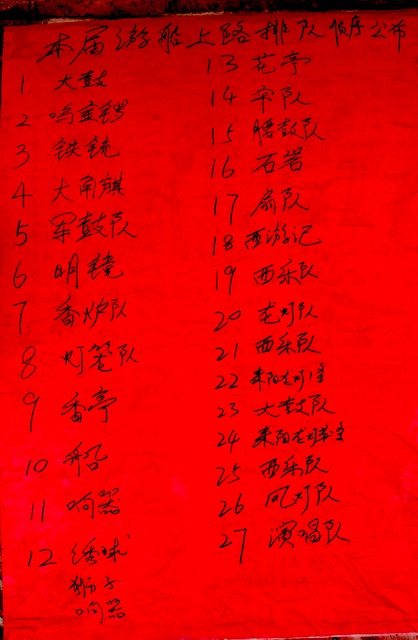 本届游船上路排队顺序公布
1 大鼓
2 鸣金锣
3 铁铳
4 大角旗
5 军鼓队
6 明镜
7 香炉队
8 灯笼队
9 香亭
10 船
11 响器
12 绣球
狮子
响器
13 花亭
14 伞队
15 腰鼓队
16 石岩
17 扇队
18 西游记
19 西乐队
20 龙灯队
21 西乐队
22 耒阳龙灯
23 大鼓队
24 耒阳龙灯
25 西乐队
26 风灯队
27 演唱队